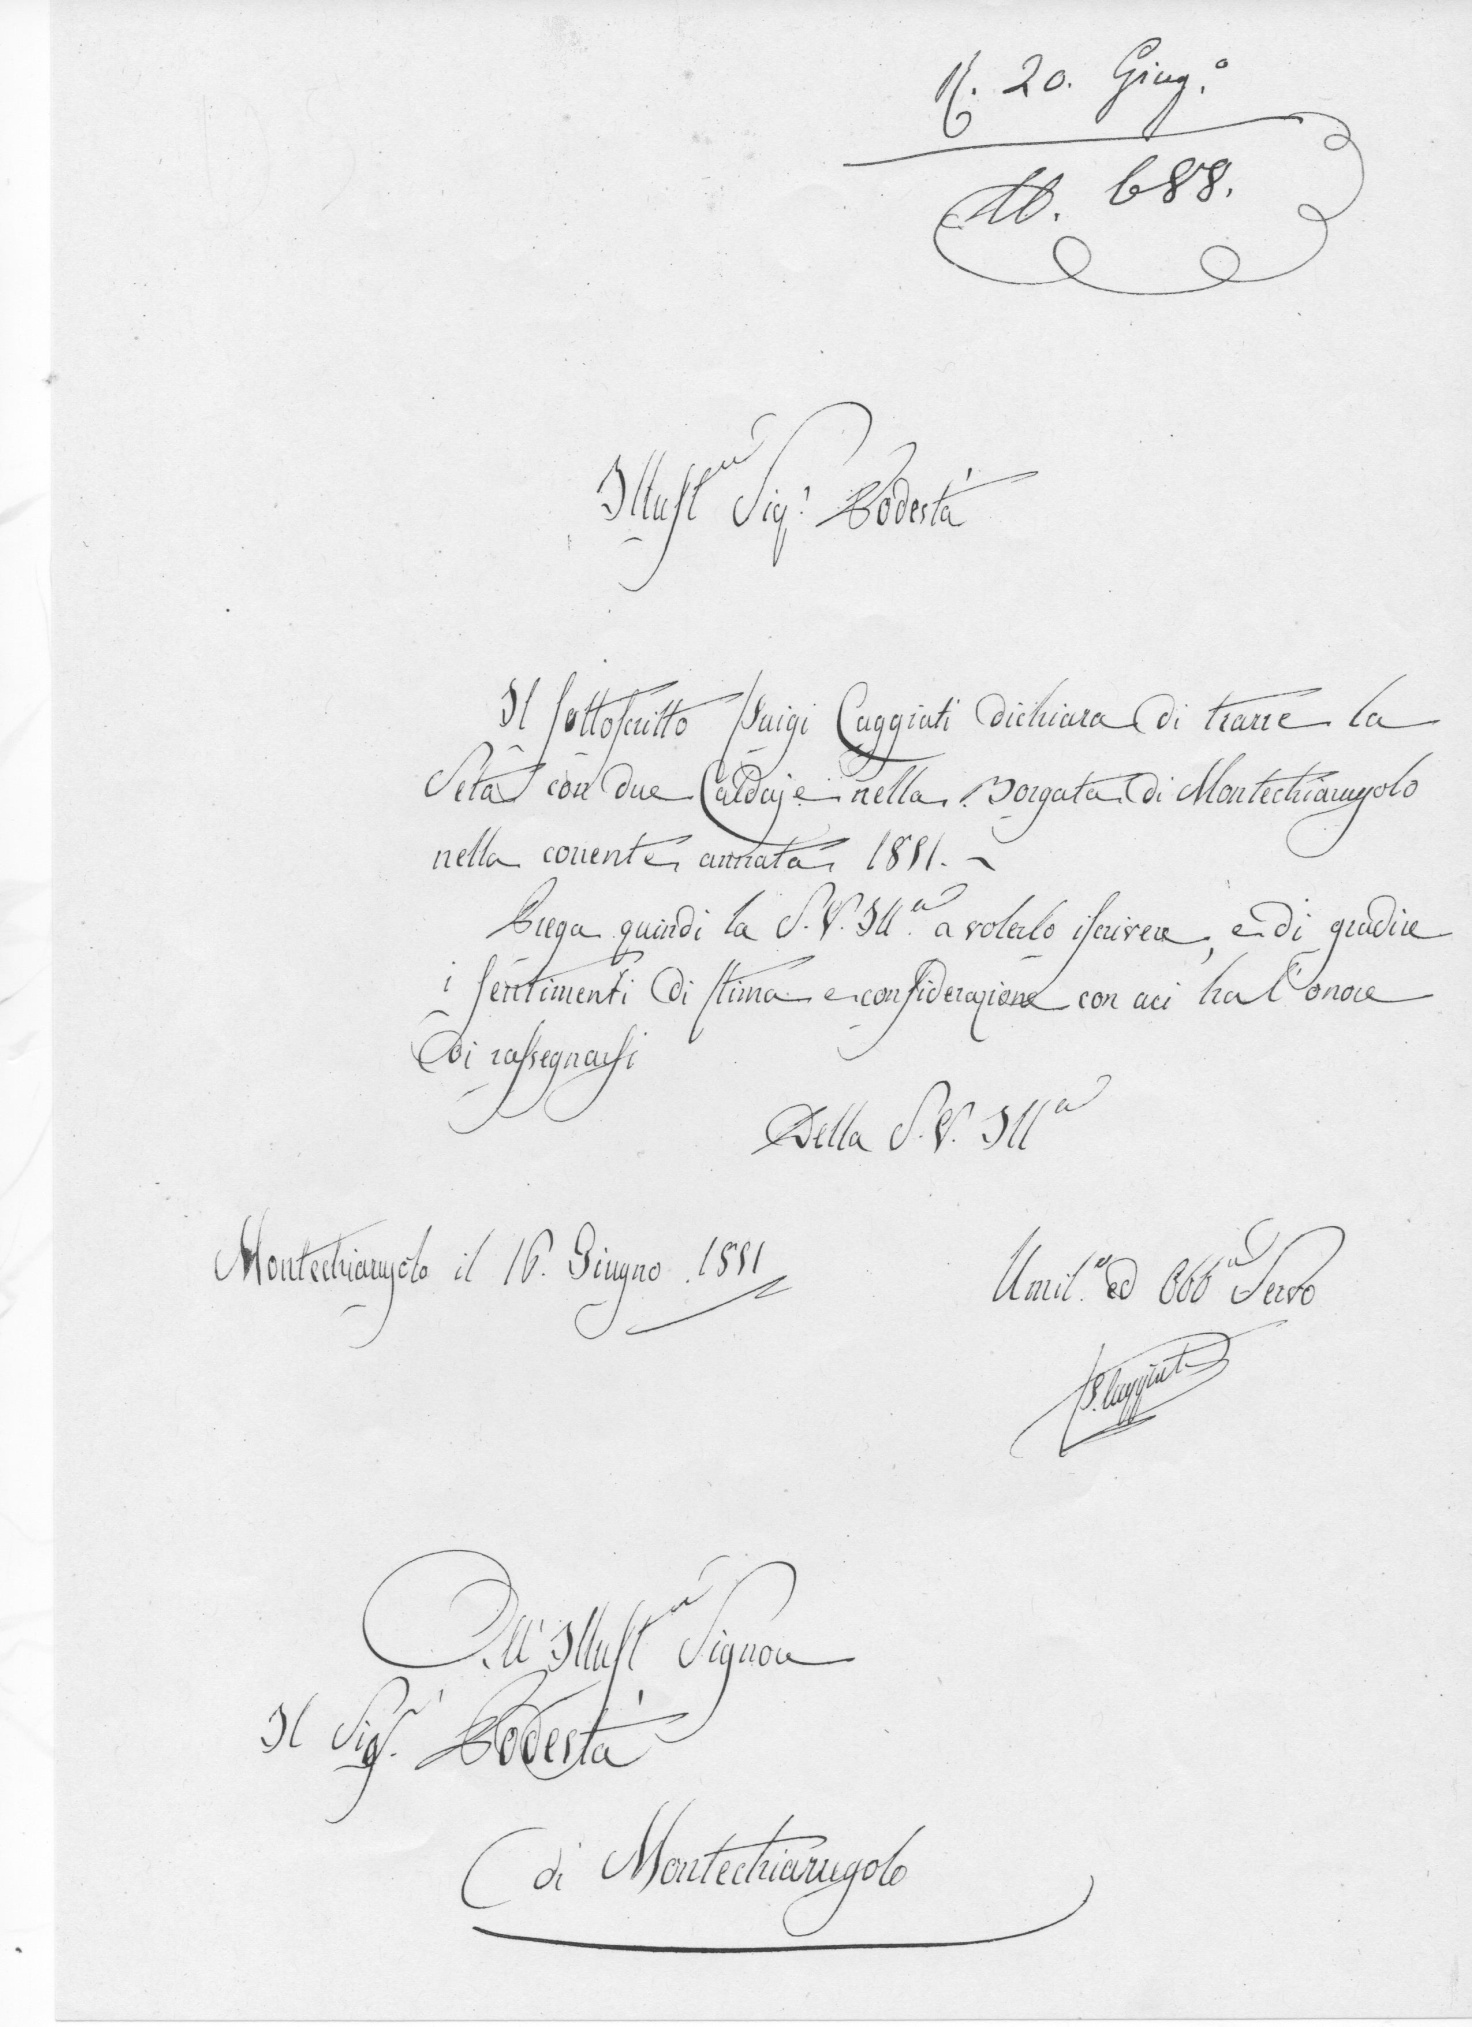 R. 20. Giug.º
N. 688.
Illustmo Sigr. Podestà
Il sottoscritto Luigi Caggiati dichiara di trarre la
Seta con due Caldaje nella Borgata di Montechiarugolo
nella corrente annata 1851. ~
Prega quindi la S. V. Illa. a volerlo iscrivere, e di gradire
i sentimenti di stima e considerazione con cui ha l'onore
di rassegnarsi
Della S. V. Illa
Montechiarugolo il 16. Giugno 1851
Umil.o ed Obbmo Servo
L. Caggiati
All' Illustmo Signore
Il Sigr. Podestà
di Montechiarugolo